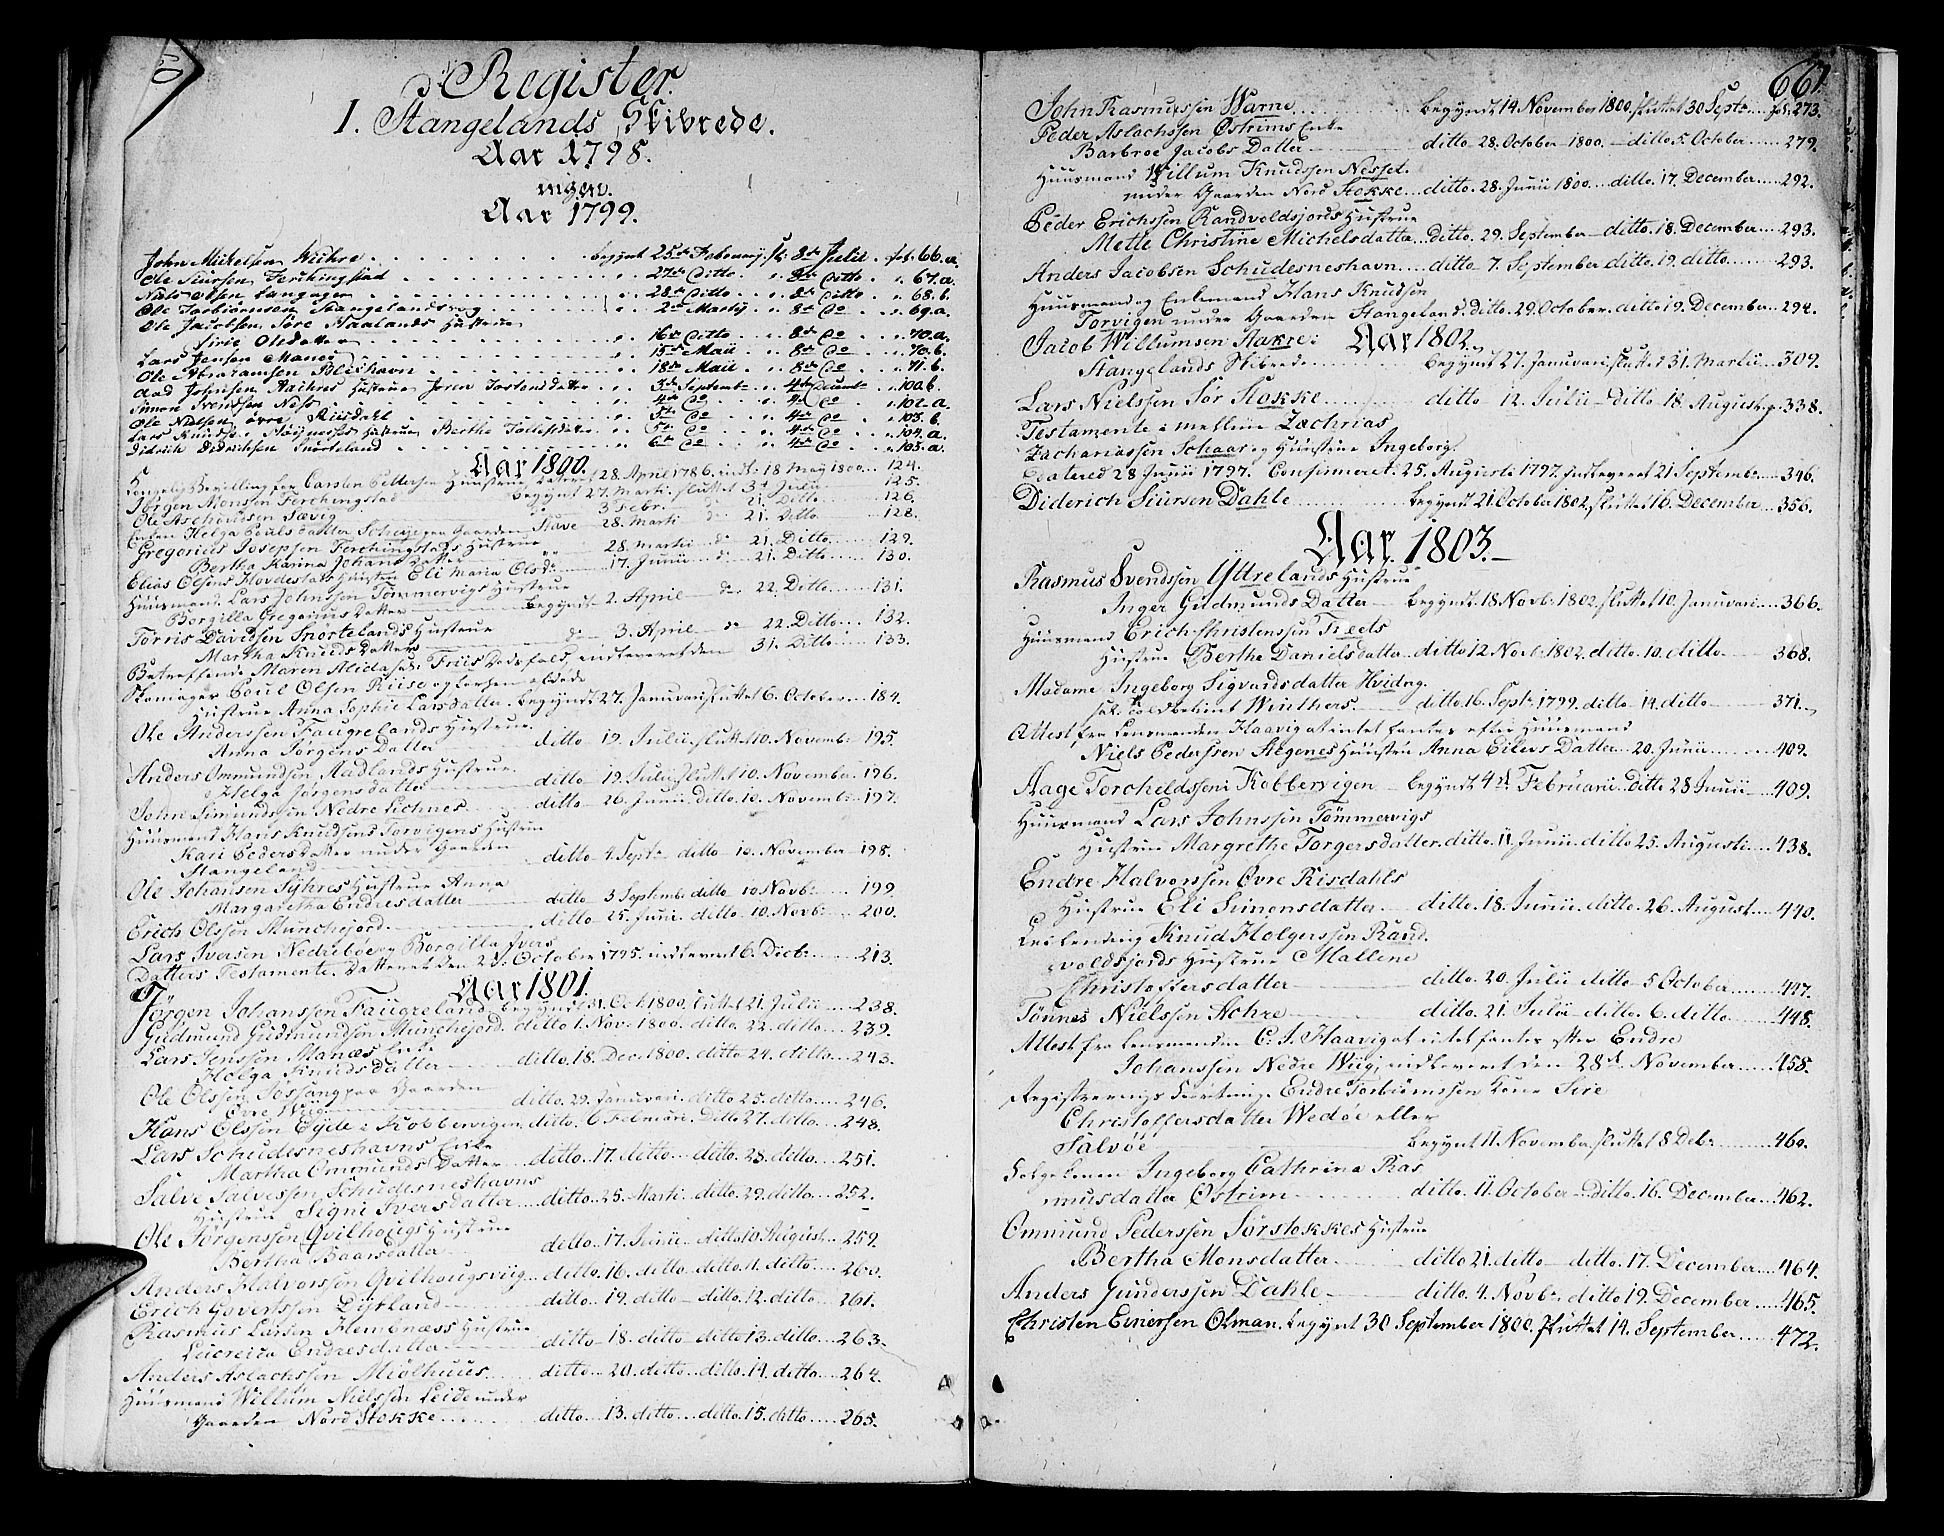 Register.
I. Stangelands Skibrede.
Aar 1798.
ingen.
Aar 1799.
John Mickelsen begynt 25de Februarij. sl. 8de Julii fol. 66.a.
Ole Siursen Ferchingstad 27de Ditto 8de Ditto 67.a.
Niels Olsen Langager 28de Ditto 8de Ditto 68.b.
Ole Torbiörnsen Stangelandsvog 2den Martij 8de Do 69.a.
Ole Jacobsen Söre Haalands Hustrue
Sirie Olsdatter 16de Ditto 8de Do 70.a.
Lars Jensen Manes 15de Maii 8de Do 70.b.
Ole Abrahamsen Blichavn 18de Maii 8de Do 71.b.
Aad Johnsen Hustrue Joren Tostensdatter 3de Septemb: 4de Decemb: 100.b.
Simon Svendsen Næs 4de Do 4de Do 102.a.
Ole Nielsen övre Riisdahl 5te Do 4de Do 103.b.
Lars Knuds: Höynesses Hustrue Berthe Tollefsdatter 5te Do 4de Do 104.a.
Didrich Didrichsen Snorteland 6te Do 4de Do 105.a.
Aar 1800.
Kongelig Bevilling for Carsten Pettersen Hustrue dateret 28 April 1786. indl: 18 May 1800 124.
Jörgen Monsen Ferchingstad begynt 27. Marti sluttet 3d Julii 125.
Ole Aschildsen Sævig 3 Febr. do 21. Ditto 126.
Enken Helga Pouls datter Scheje paa Gaarden Stave 28. Marti do 21. Ditto 128.
Gregorius Josepsen Ferchingstads Hustrue
Bertha Karina Johans datter 28. Marti do 21. Ditto 129.
Elias Olsens Hovdestads Hustrue Eli Maria Olsdr 17. Junii do 21. Ditto 130.
Huusmand Lars Johnsen Tömmervigs Hustrue
Borgilla Gregorius datter begynt 2. April do 22. Ditto 131.
Törris Davidsen Snortelands Hustrue
Martha Knuds datter do 3. April do 22. Ditto 132.
Betreffende Maren Alida sal: Friis Dødsfald, indleveret den 31. Ditto 133.
Skoninger Poul Olsen Riise og forhen afdøde
Hustrue Anna Sophie Larsdatter. begyndt 27. Januvari sluttet 6. October 184.
Ole Anderssen Faugrelands Hustrue
Anna Jörgens Datter ditto 19. Julii sluttet 10. Novemb: 195.
Anders Ommundsen Aadlands Hustrue
Helga Jörgensdatter ditto 19. Julii sluttet 10. November 196.
John Simundssen Nedre Liknes ditto 26. Junii ditto 10. Novemb: 197.
Huusmand Hans Knudsens Torvigens Hustrue
Kari Peders datter under Gaarden
Stangeland ditto 4. Septr ditto 10. November 198.
Ole Johansen Sÿhres Hustrue Anna
Margaretha Endresdatter ditto 3 Septemb: ditto 10. Novb: 199.
Erich Olssen Munchejord ditto 25. Junii ditto 10. Novb: 200.
Lars Iversen Nedreböe og Borgilla Ivers
Datters Testamente. Datteret den 28. October 1795. indleveret 6. Decbr 213.
Aar 1801.
Jörgen Johanssen Faugreland begyndt 31. Oct. 1800. sluttet 21. Julii 238.
Gudmund Gudmundsen Munchejord ditto 1. Nov: 1800. ditto 22. ditto 239.
Lars Jenssen Manæs Enke
Helga Knudsdatter ditto 18. Dec: 1800. ditto 24. ditto 243.
Ole Olssen Jössang paa Gaarden
Övre Wiig ditto 29. Januvari ditto 25. ditto 246.
Hans Olssen Eÿde i Kobbervigen. ditto 6 Februari. Ditto 27. ditto 248.
Lars Schudesneshavns Enke
Martha Ommunds Datter ditto 17. ditto ditto 28. ditto 251.
Salve Salvessen Schudesneshavns
Hustrue Signi Iversdatter ditto 25. Marti ditto 29. ditto 252.
Ole Jörgenssen Qvilhougs Hustrue
Bertha Baarsdatter ditto 17. Junii ditto 10. August 259.
Anders Halvorssen Qvilhougsviig ditto 16. ditto ditto 11. ditto 260.
Erich Goverssen Dÿsland ditto 19. ditto ditto 12. ditto 261.
Rasmus Larsen Hemnæss Hustrue
Lucreita Endresdatter ditto 18. ditto ditto 13. ditto 263.
Anders Aslachssen Miölhuus ditto 20. ditto ditto 14. ditto 264.
Huusmand Willum Nielssen Leide under
Gaarden Nord Stokke ditto 13. ditto ditto 15. ditto 265.
661
John Rasmussen Warne begyndt 14. November 1800. sluttet 30 Septr fol. 273.
Peder Aslachssen Östrims Enke
Barbroe Jacobs Datter ditto 28. October 1800. ditto 5. October 279.
Huusmand Willum Knudssen Nesset
under Gaarden Nord Stokke ditto. 28. Junii 1800. ditto. 17. December 292.
Peder Erichssen Randvoldsjords Hustrue
Mette Christine Michelsdatter ditto. 29. September ditto. 18. December 293.
Anders Jacobsen Schudesneshavn ditto 7. September ditto. 19. ditto 293.
Huusmand og Enkemand Hans Knudsen
Torvigen under Gaarden Stangeland. ditto. 29. October. ditto 19. December 294.
Aar 1802.
Jacob Willumsen Aakre i
Stangelands Skibrede begyndt 27. Januvari sluttet 31. Martii 309.
Lars Nielssen Sör Stokke ditto 12. Julii ditto 18. August 338.
Testamente imellem Zachrias
Zachariassen Schaar og Hustrue Ingeborg
datered 28 Junii 1797. Confirmeret 25. Augusti 1797. Indleveret 21 September 346.
Diderich Siursen Dahle begyndt 21. October 1802. sluttet 16. December 356.
Aar. 1803.
Rasmus Svendssen Yttrelands Hustrue
Inger Gudmunds Datter begyndt. 18. Novb: 1802. sluttet 10. Januvari 366.
Huusmand Erich Christenssen Treets
Hustrue Berthe Danielsdatter ditto 12 Novb: 1802. ditto. 10. ditto 368.
Madame Ingeborg Sigvardsdatter Hviding
sal. Winthers ditto. 16. Septr 1799. ditto 14. ditto 371.
Attest fra Lensmanden Haavig at intet fantes efter Huusmand
Niels Pederssen Stegenes Hustrue Anna Eilers Datter. 20. Junii 409.
Aage Torcheldssen i Kobbervigen begyndt 4de Februarii ditto 28 Junii 409.
Huusmand Lars Johnssen Tömmervigs
Hustrue Margrethe Torgersdatter. ditto. 11. Junii ditto 25. Augusti 438.
Endre Halvorssen Övre Risdahls
Hustrue Eli Simonsdatter ditto. 18. Junii. ditto. 26. August 440.
Leilænding Knud Holgerssen Rand
voldsjords Hustrue Mallene
Christoffersdatter ditto. 20. Julii ditto 5 October 447.
Tönnes Nielssen Hohre ditto. 21. Julii ditto. 6. ditto 448.
Attest fra Lensmanden C. J. Haavig at intet fantes efter Endre
Johanssen Nedre Wiig, indleveret den 28de November 458.
Registrerings Forretning. Endre Torbiörnssen Kone Sire
Christoffersdatter Wedøe eller
Salvöe begyndt 11. November sluttet 8 Debr 460.
Ingeborg Cathrina Ras
musdatter Östrim ditto. 11. October ditto. 16. December 462.
Ommund Pederssen Sörstokkes Hustrue
Bertha Monsdatter ditto 21. ditto ditto. 17. December 464.
Anders Gunderssen Dahle ditto. 4. Novb: ditto 19. December 465.
Christen Einersen Olman. begynt 30 September 1800. sluttet 14. September 472.